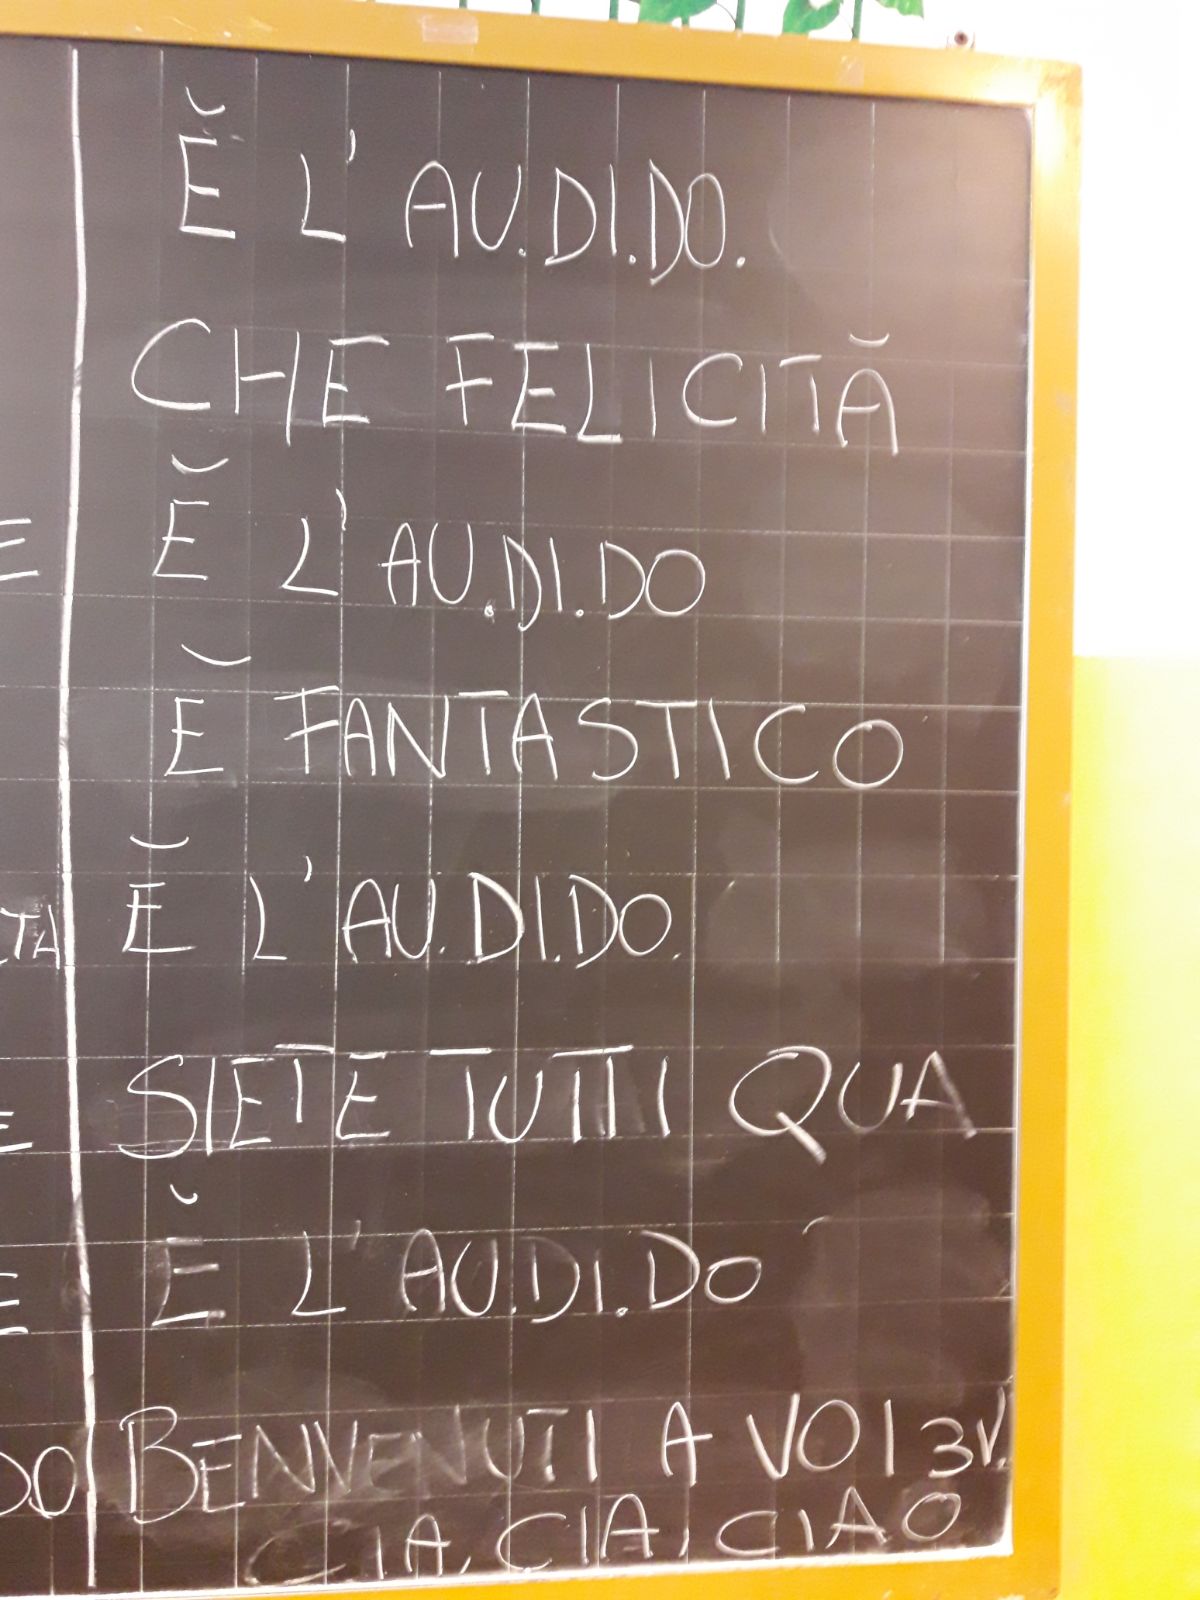 Ĕ L'AU.DI.DO.
CHE FELICITĂ
E
Ĕ L'AU.DI.DO
Ĕ FANTASTICO
TA
Ĕ L'AU.DI.DO.
E
SIETE TUTTI QUA
E
Ĕ L'AU.DI.DO
DO
BENVENUTI A VOI 3V.
CIA, CIA, CIAO